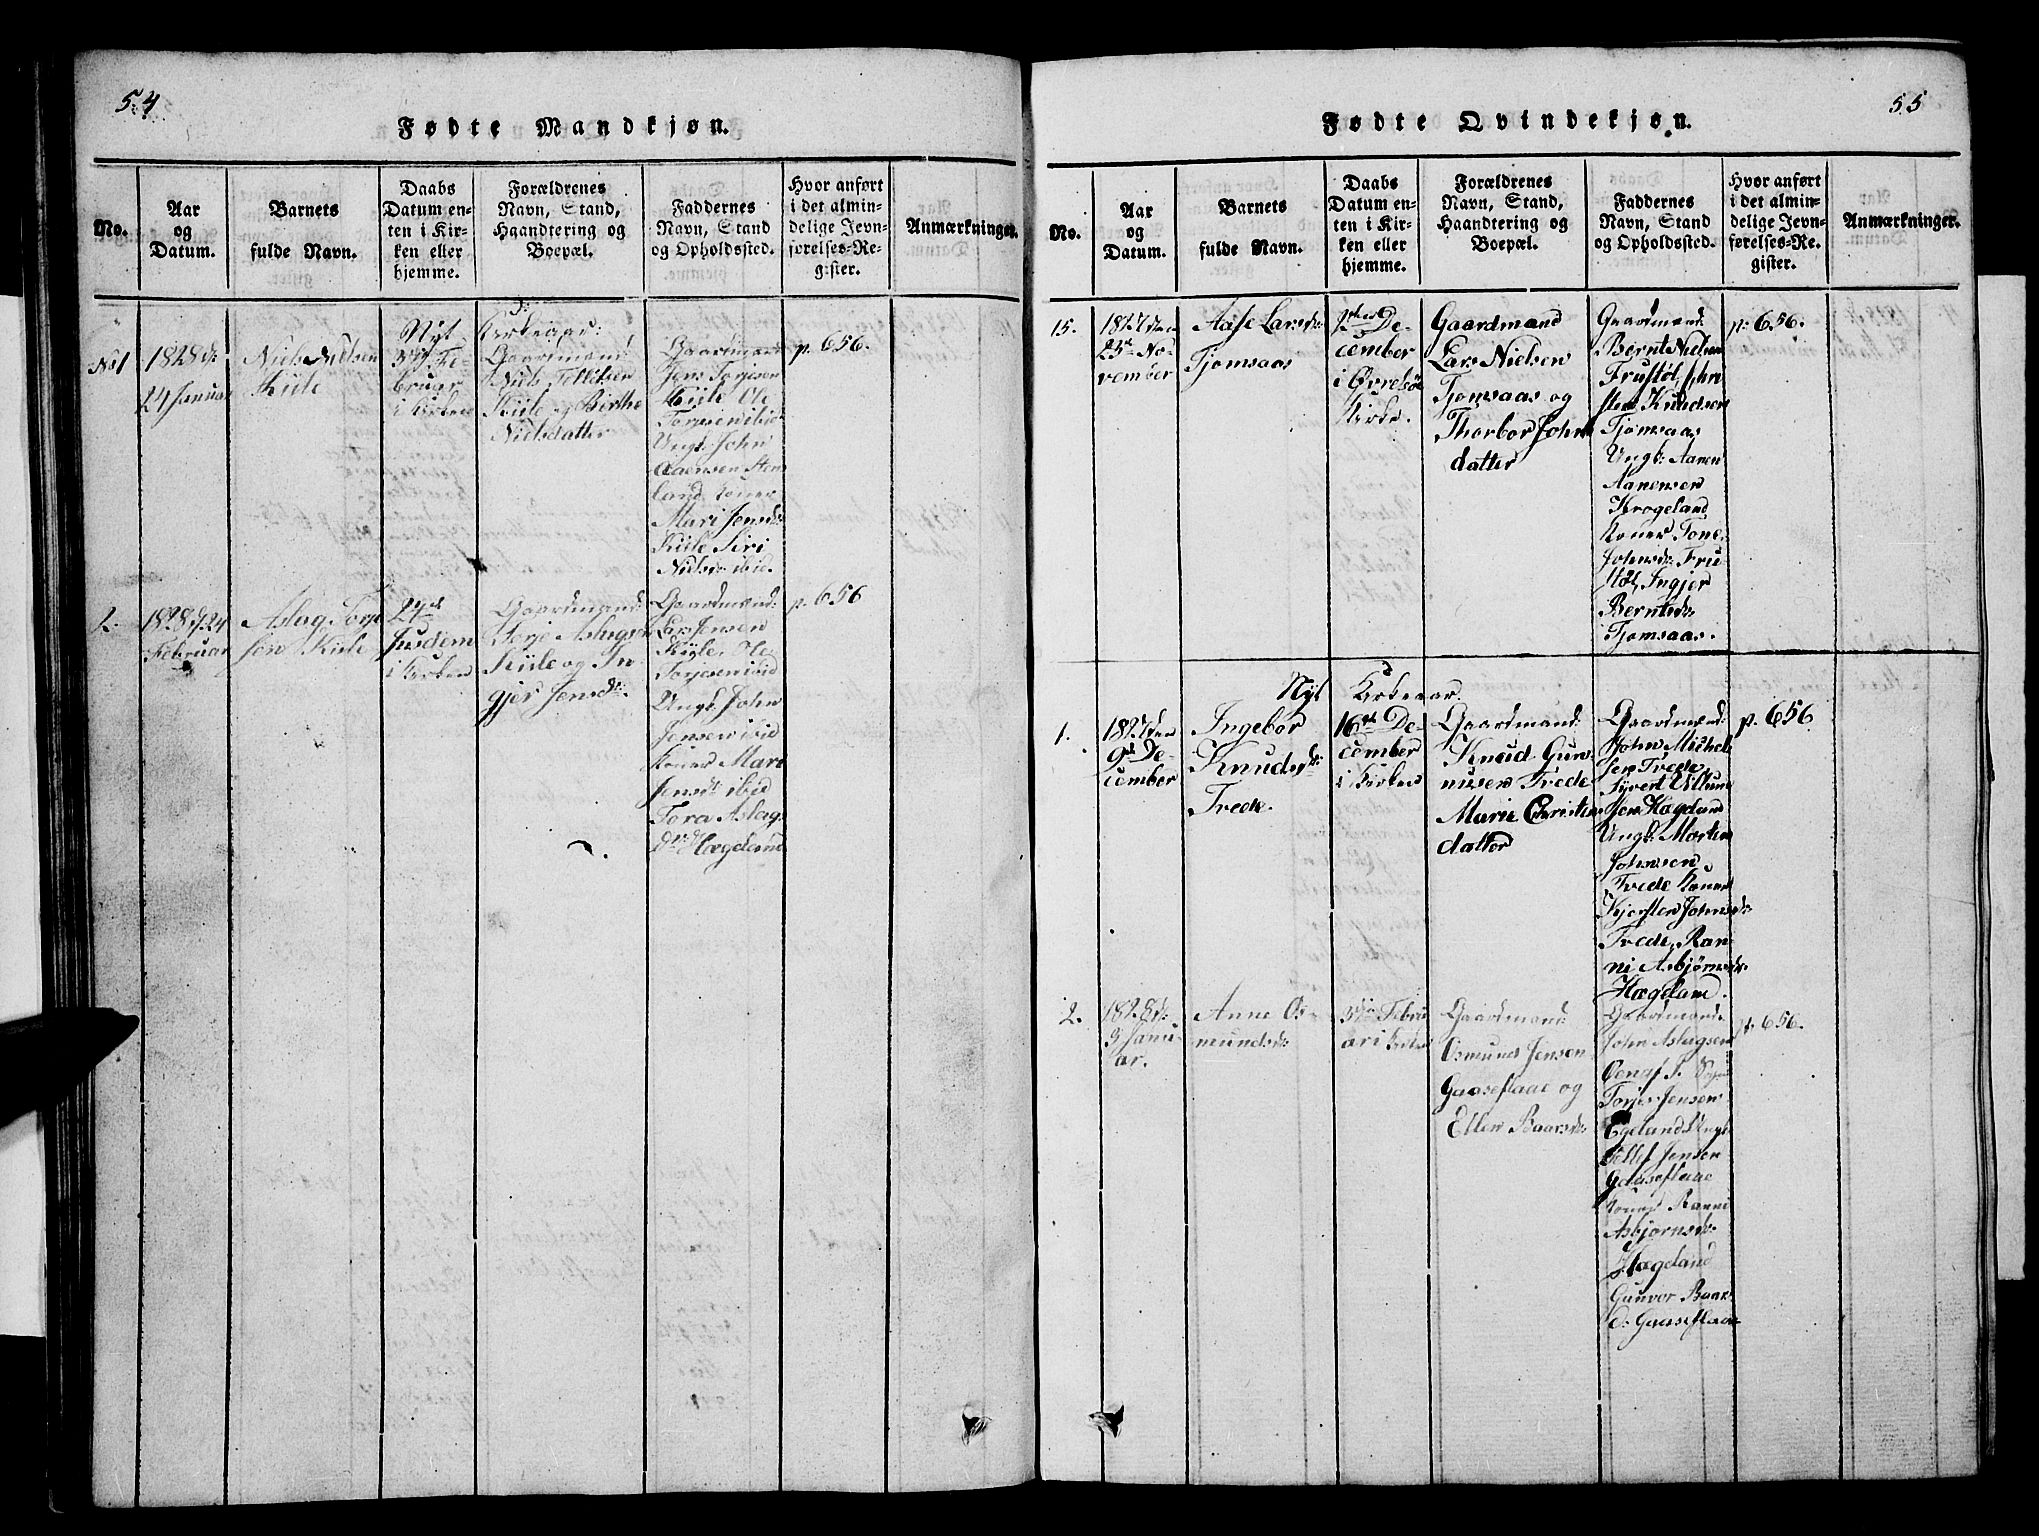 54
Fødte Mandkjøn.
No.
Aar
og
Datum.
Barnets
fulde Navn.
Daabs
Datum en-
ten i Kir-
ken eller
hjemme.
Forældrenes
Navn, Stand,
Haandtering og
Boepæl.
Faddernes
Navn, Stand
og Opholdssted.
Hvor anført
i det almin-
delige Jevn-
førelses-Re-
gister.
Anmærkninger.
Nyt Kirkeaar:
No 1
1828 d:
24 Januar
Niels Nielsen
Kiile
3die Fe-
bruar
i Kirken
Gaardmand
Niels Tellefsen
Kiile og Birthe
Nielsdatter
Gaardmænd
Jens Torjesen
Kiile Ole
Torjesen ibid
Ungk: John
Aaensen Sten
land Koner
Mari Jensd:
Kiile Siri
Nielsd: ibid.
p. 656.
2.
1828 d. 24
Februar
Aslag Torje
sen Kiile
24de
Jusdem
i Kirken
Gaardmand:
Torje Aslagsen
Kiile og In-
gjer Jensd:
Gaardmænd:
Lars Jensen
Kiile, Ole
Torjesen ibid
Ungk: John
Jensen ibid
Koner Mari
Jensd: ibid
Tora Aslag
dr: Hægeland
p. 656
55
Fødte Qvindekjøn.
No.
Aar
og
Datum.
Barnets
fulde Navn.
Daabs
Datum en-
ten i Kir-
ken eller
hjemme.
Forældrenes
Navn, Stand,
Haandtering og
Boepæl.
Faddernes
Navn, Stand
og Opholdssted.
Hvor anført
i det almin-
delige Jevn-
førelses-Re-
gister.
Anmærkninger.
15.
1827 den
25de No-
vember
Aase Larsd:
Tjomsaas
De-
cember
i Øvrebøe
Kirke.
Gaardmand
Lars Nielsen
Tjomsaas og
Thorbor John
datter
Gaardmænd:
Bernt Nielsen
Frustøl, Chri
sten Knudsen
Tjomsaas
Ungk: Aanen
Aanensen
Krogeland
Koner Tone
Johnsd: Fru
støl, Ingjer
Berntsd:
Tjomsaas.
p: 656.
Nyt Kirkeaar.
1.
1827 den
9de De-
cember
Ingebor
Knudsd:
Trede.
16de De-
cember
i Kirken
Gaardmand:
Knud Gun-
nusen Trede
Marie Christen
datter
Gaardmænd:
John Michel
sen Trede,
Syvert Villum
sen Hægeland
Ungk: Morten
Johnsen
Trede Koner
Kjersten Johnsd:
Trede, Ran-
ni Asbjørnsd:
Hægeland.
p. 656
2.
1828 d:
3 Janu-
ar.
Anne Os-
mundsd:
3die Febru
ar i Kirken
Gaardmand:
Osmund Jensen
Gaaseflaae og
Ellen Baarsd:
Gaardmænd:
John Aslagsen
Torjes Jensen
Egeland Ungk:
Tellef Jensen
Gaaseflaae
Koner Ranni
Asbjørnsd:
Hægeland
Gunvor Baar
d: Gaaseflaae
p. 656.